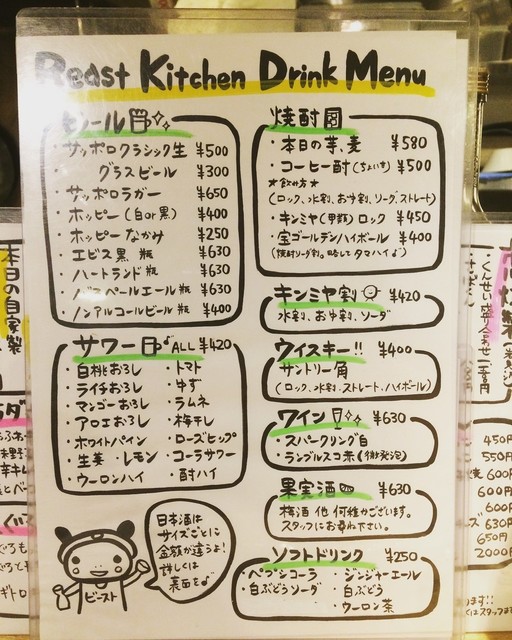 Beast Kitchen Drink Menu
ビール
・サッポロクラシック生 ¥500
グラスビール ¥300
・サッポロラガー ¥650
・ホッピー(白or黒) ¥400
・ホッピーなかみ ¥250
・エビス黒瓶 ¥630
・ハートランド瓶 ¥630
・バスペールエール瓶 ¥630
・ノンアルコールビール瓶 ¥400
サワー ALL ¥420
・白桃おろし
・ライチおろし
・マンゴーおろし
・アロエおろし
・ホワイトパイン
・生姜・レモン
・ウーロンハイ
・トマト
・ゆず
・ラムネ
・梅干し
・ローズヒップ
・コーラサワー
・酎ハイ
日本酒は
サイズごとに
金額が違うよ!
詳しくは
裏面を♪
ビースト
焼酎
・本日の芋、麦 ¥580
・コーヒー酎(ちょいす) ¥500
★飲み方★
(ロック、水割、お湯割、ソーダ、ストレート)
・キンミヤ(甲類)ロック ¥450
・宝ゴールデンハイボール ¥400
(焼酎ソーダ割。略してタマハイ♪)
キンミヤ割 ¥420
水割、お湯割、ソーダ
ウイスキー!! ¥400
サントリー角
(ロック、水割、ストレート、ハイボール)
ワイン ¥630
・スパークリング白
・ランブルスコ赤(微発泡)
果実酒 ¥630
梅酒 他 何種かございます。
スタッフにお尋ね下さい。
ソフトドリンク ¥250
・ペプシコーラ
・白ぶどうソーダ
・ジンジャーエール
・白ぶどう
・ウーロン茶
本日の自家製
450円
550円
600円
600円
600円
630円
650円
2000円